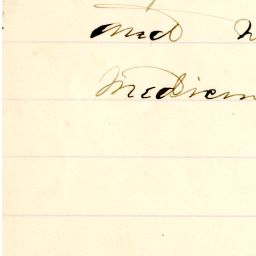 and
Medicin